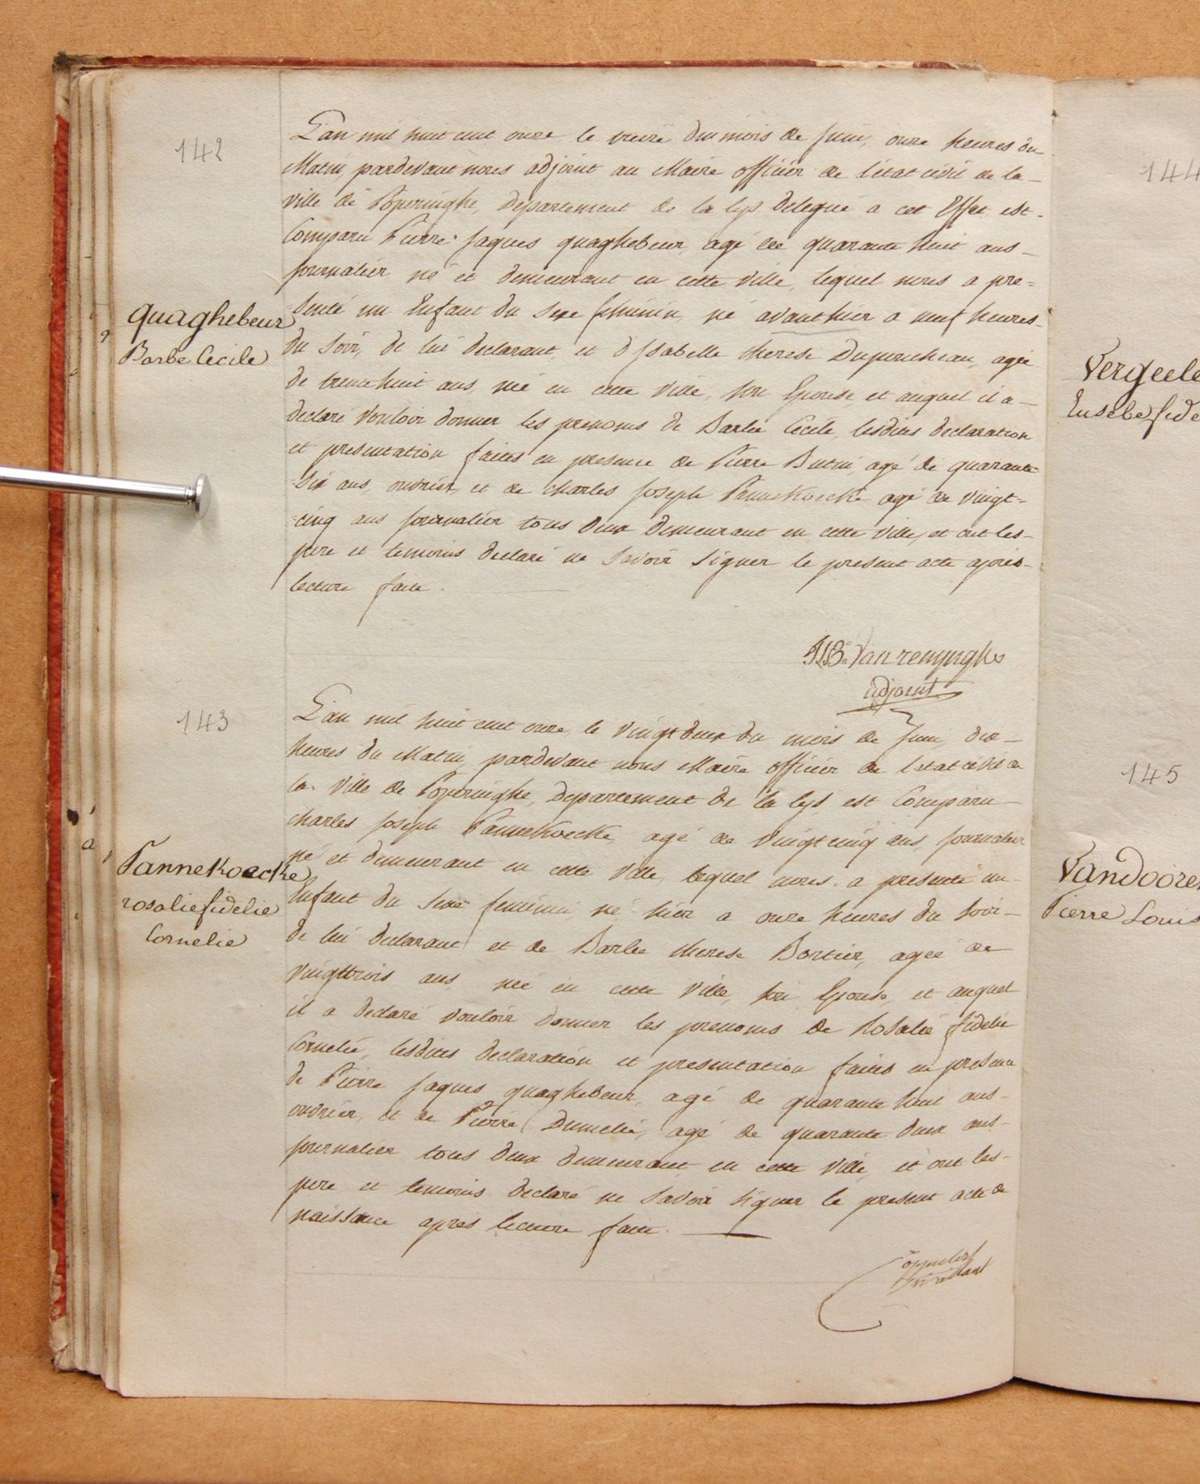 142
L'an mil huit cent onze le treize du mois de juin, onze heures du
Matin pardevant nous adjoint au Maire officier de l'etat civil de la
ville de Poperinghe, departement de la Lys delegué a cet Effet est
Comparu Pierre Jaques quaghebeur, agé de quarante huit ans
journalier né et demeurant en cette ville, lequel nous a pre=
senté un Enfant du Sexe feminin, né avanthier a neuf heures
quaghebeur
Barbe Cecile
du Soir, de lui declarant et d'Isabelle therese agée
de trente huit ans née en cette ville, son Epouse et auquel il a
declaré vouloir donner les prenoms de Barbe Cecile, lesdites declaration
et presentation faites en presence de Pierre agé de quarante
Six ans, ouvrier, et de charles joseph Pannekoecke agé de vingt=
cinq ans journalier tous deux demeurant en cette ville, et ont les
pere et temoins declaré ne Savoir Signer le present acte après
lecture faite.
Vanrenynghe
adjoint
143
L'an mil huit cent onze, le vingt deux du mois de juin, dix
heures du Matin, pardevant nous Maire officier de l'etat civil de
la Ville de Poperinghe, departement de la lys est Comparu
charles joseph Pannekoecke, agé de vingt cinq ans, journalier
né et demeurant en cette ville, lequel nous a presenté un
Pannekoecke
rosalie fidelie
Cornelie
Enfant du Sexe feminin, né hier a onze heures du Soir
de lui declarant et de Barbe therese Bortier, agée de
vingttrois ans née en cette Ville, son Epouse, et auquel
il a declaré vouloir donner les prenoms de Rosalie fidelie
Cornelie, lesdites declaration et presentation faites en presence
de Pierre Jaques quaghebeur, agé de quarante huit ans
ouvrier, et de Pierre Dumelié, agé de quarante deux ans
journalier tous deux demeurant en cette ville, et ont les
pere et temoins declaré ne Savoir Signer le present acte de
naissance après lecture faite.
144
Vergeele
Eusebe fide
145
Vandooren
Pierre Louis